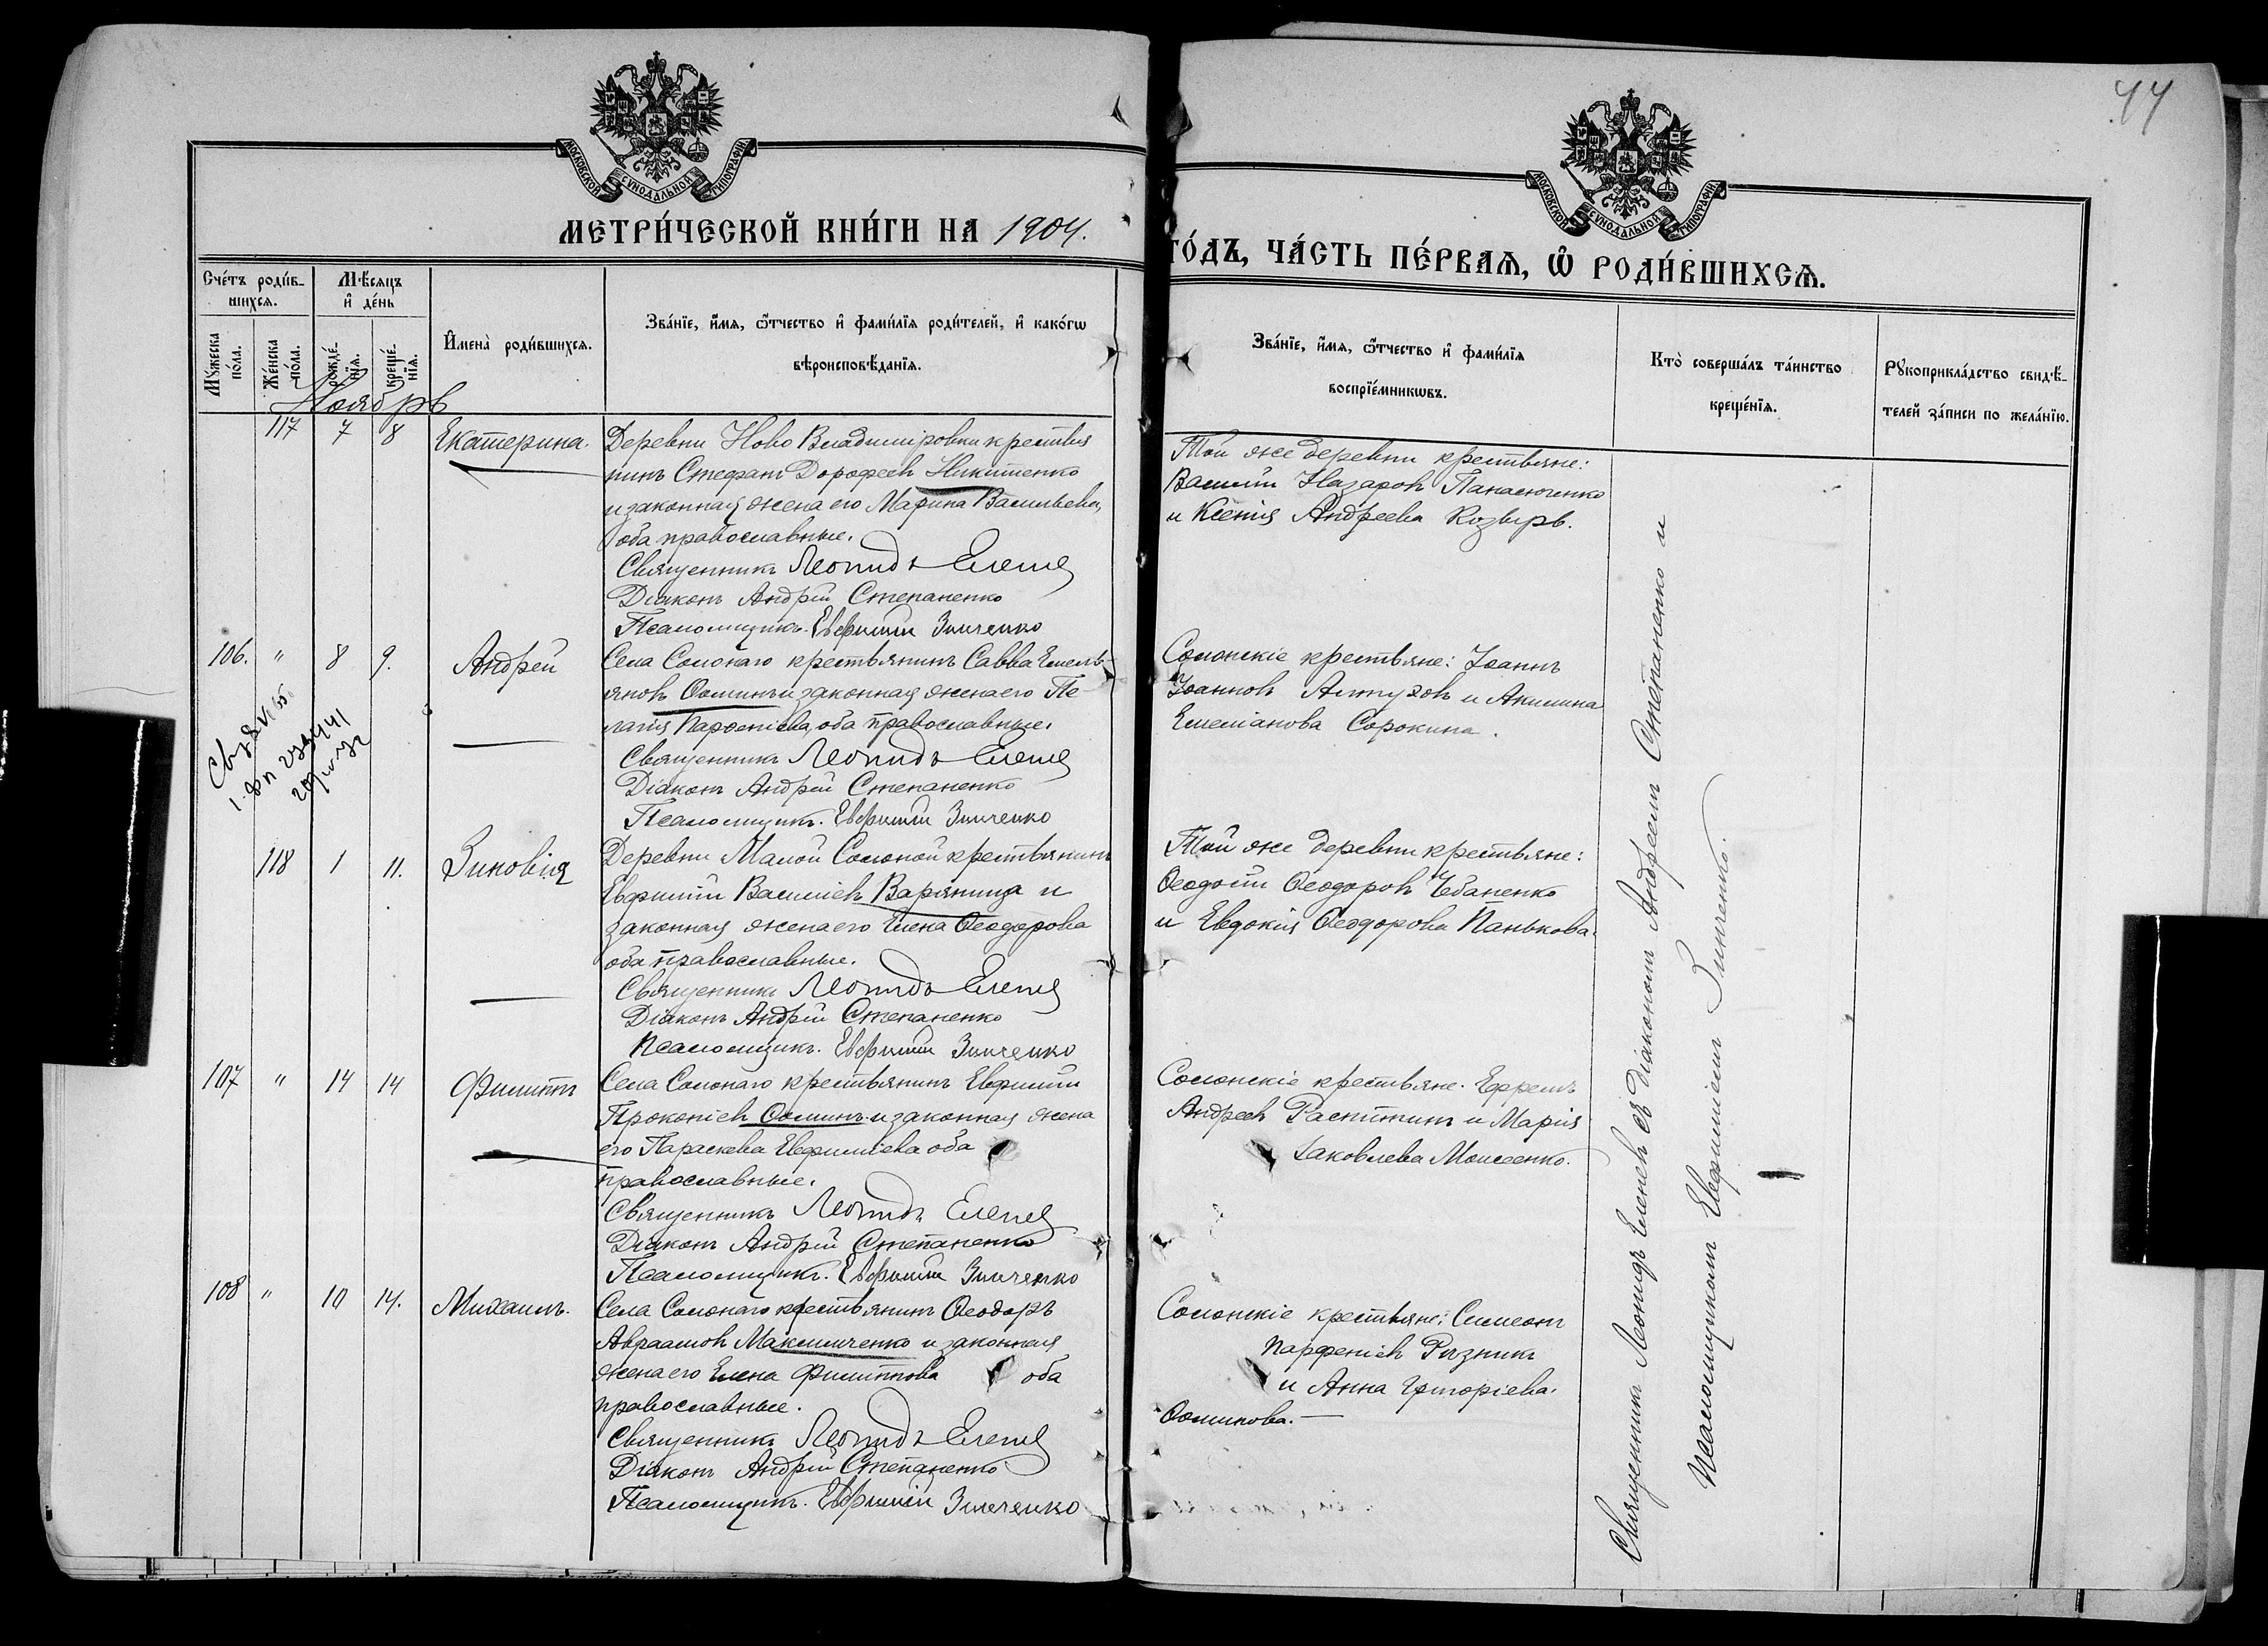 44
МОСКОВСКОЙ СѴНОДАЛЬНОЙ ТИПОГРАФІИ
МОСКОВСКОЙ СѴНОДАЛЬНОЙ ТИПОГРАФІИ
МЕТРИ́ЧЕСКОЙ КНИ́ГИ НА 1904.
ГО́ДЪ, ЧА́СТЬ ПЕ́РВАѦ, Ѡ҆ РОДИ́ВШИХСѦ.
Сче́тъ роди́в-
шихсѧ.
Мꙋ́жеска по́ла.
Же́нска по́ла.
Мѣ́сѧцъ
и҆ де́нь
рожде́-
нїѧ.
креще́-
нїѧ.
И҆мена̀ роди́вшихсѧ.
Зва́нїе, и҆́мѧ, ѻ҆́тчество и҆ фами́лїѧ роди́телей, и҆ како́гѡ
вѣроисповѣ́данїѧ.
Зва́нїе, и҆́мѧ, ѻ҆́тчество и҆ фами́лїѧ
воспрїе́мникѡвъ.
Кто̀ соверша́лъ та́инство
креще́нїѧ.
Рꙋкоприкла́дство свидѣ́-
телей за́писи по жела́нїю.
Ноябрь
117 7 8 Екатерина.
Деревни Ново Владиміровки крестья
нинъ Стефанъ Дорофеевъ Никитенко
и законная жена его Марина Васильева,
оба православные.
Священникъ Леонидъ Еленев
Діаконъ Андрей Степаненко
Псаломщикъ. Евфимій Зинченко
Той же деревни крестьяне:
Василій Назаровъ Панасюченко
и Ксенія Андреева Козырь.
106. " 8 9. Андрей
Села Солонаго крестьянинъ Савва Емель-
яновъ Ѳоминъ и законная жена его Пе-
лагія Парѳеніева, оба православные.
Священникъ Леонидъ Еленев
Діаконъ Андрей Степаненко
Псаломщикъ. Евфимій Зинченко
Солонскіе крестьяне: Іоаннъ
Іоанновъ Алтуховъ и Акилина
Емеліанова Сорокина.
118 1 11. Зиновія
Деревни Малой Солоной крестьянинъ
Евфимій Василіевъ Варяница и
законная жена его Елена Ѳеодорова
оба православные.
Священникъ Леонидъ Еленев
Діаконъ Андрей Степаненко
Псаломщикъ. Евфимій Зинченко
Той же деревни крестьяне:
Ѳеодосій Ѳеодоровъ Чебаненко
и Евдокія Ѳеодорова Панькова.
107 " 14 14 Филиппъ
Села Солонаго крестьянинъ Евфимій
Прокопіевъ Ѳоминъ и законная жена
его Параскева Евфиміева оба
православные.
Священникъ Леонидъ Еленев
Діаконъ Андрей Степаненко
Псаломщикъ. Евфимій Зинченко
Солонскіе крестьяне. Ефремъ
Андреевъ Распитинъ и Марія
Іаковлева Моисеенко.
108 " 10 14. Михаилъ.
Села Солонаго крестьянинъ Ѳеодоръ
Авраамовъ Максимченко и законная
жена его Елена Филиппова оба
православные.
Священникъ Леонидъ Еленев
Діаконъ Андрей Степаненко
Псаломщикъ. Евфимій Зинченко
Солонскіе крестьяне: Симеонъ
Парфеніевъ Рызникъ
и Анна Григоріева.
Ѳоминова.
Священникъ Леонидъ Еленевъ съ діакономъ Андреемъ Степаненко и
Псаломщикомъ Евфиміемъ Зинченко.